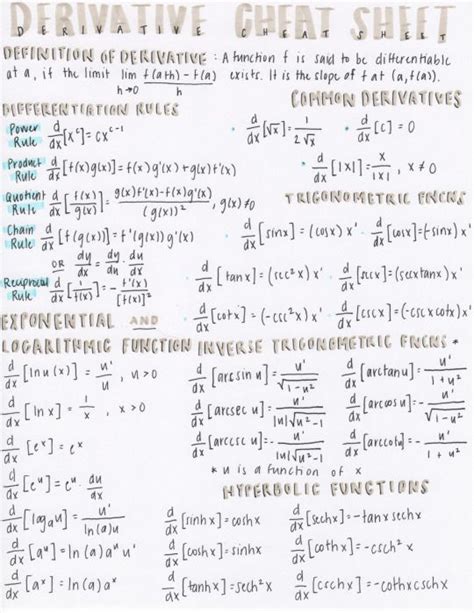 DERIVATIVE CHEAT SHEET
DERIVATIVE CHEAT SHEET
DEFINITION OF DERIVATIVE: A function f is said to be differentiable
at a, if the limit lim h→0 f(a+h) - f(a) / h exists. It is the slope of f at (a, f(a)).
DIFFERENTIATION RULES
Power Rule d/dx [x^c] = cx^(c-1)
Product Rule d/dx [f(x)g(x)] = f(x)g'(x) + g(x)f'(x)
Quotient Rule d/dx [f(x)/g(x)] = g(x)f'(x) - f(x)g'(x) / (g(x))², g(x) ≠ 0
Chain Rule d/dx [f(g(x))] = f'(g(x))g'(x)
OR dy/dx = dy/du · du/dx
Reciprocal Rule d/dx [1/f(x)] = - f'(x)/[f(x)]²
COMMON DERIVATIVES
· d/dx [√x] = 1/2√x · d/dx [c] = 0
· d/dx [|x|] = x/|x|, x ≠ 0
TRIGONOMETRIC FNCNS
· d/dx [sinx] = (cosx) x' · d/dx [cosx] = (-sinx) x'
· d/dx [tanx] = (sec²x) x' · d/dx [secx] = (secxtanx) x'
· d/dx [cotx] = (-csc²x) x' · d/dx [cscx] = (-cscxcotx) x'
EXPONENTIAL AND
LOGARITHMIC FUNCTION
d/dx [ln u(x)] = u'/u, u>0
d/dx [lnx] = 1/x, x>0
d/dx [e^x] = e^x
d/dx [e^u] = e^u · du/dx
d/dx [log_a u] = u'/ln(a)u
d/dx [a^u] = ln(a) a^u u'
d/dx [a^x] = ln(a) a^x
INVERSE TRIGONOMETRIC FNCNS *
d/dx [arcsin u] = u'/√1-u² d/dx [arctanu] = u'/1+u²
d/dx [arcsec u] = u'/|u|√u²-1 d/dx [arccos u] = -u'/√1-u²
d/dx [arccsc u] = -u'/|u|√u²-1 d/dx [arccotu] = -u'/1+u²
* u is a function of x
HYPERBOLIC FUNCTIONS
d/dx [sinhx] = coshx d/dx [sechx] = -tanxsechx
d/dx [coshx] = sinhx d/dx [cothx] = -csch²x
d/dx [tanhx] = sech²x d/dx [cschx] = -cothxcschx